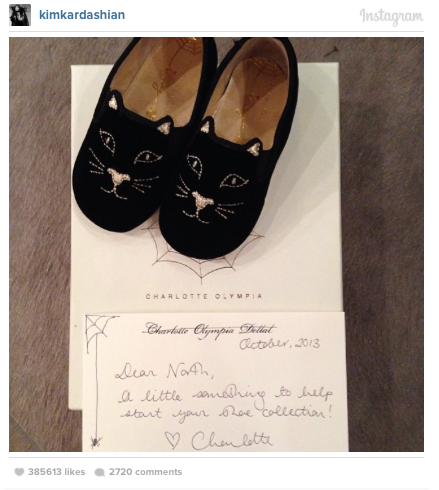 kimkardashian
Instagram
CHARLOTTE OLYMPIA
Charlotte Olympia Dellal
October, 2013
Dear North,
A little something to help
start your shoe collection!
♡ Charlotte
385613 likes 2720 comments